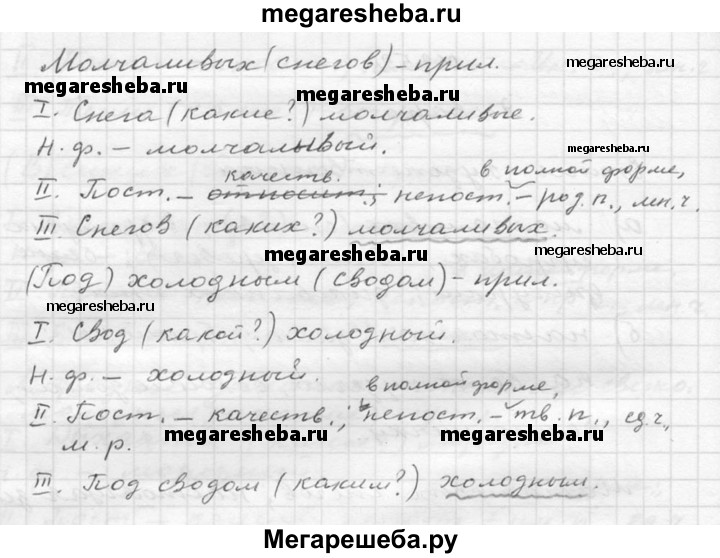 megaresheba.ru
Молчаливых (снегов) – прил.
megaresheba.ru
megaresheba.ru megaresheba.ru
I. Снега (какие?) молчаливые.
Н. ф. – молчаливый.
megaresheba.ru
качеств. в полной форме,
II. Пост. – относит.; непост. – род. п., мн. ч.
III. Снегов (каких?) молчаливых.
megaresheba.ru megaresheba.ru
(Под) холодным (сводом) – прил.
megaresheba.ru
I. Свод (какой?) холодный.
megaresheba.ru
Н. ф. – холодный.
в полной форме,
II. Пост. – качеств.; непост. – тв. п., ед. ч.,
м. р.
megaresheba.ru megaresheba.ru
III. Под сводом (каким?) холодным.
Мегарешеба.ру